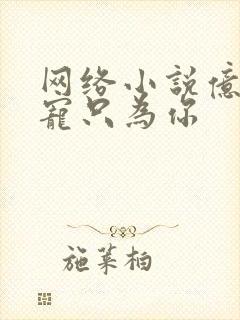 网络小説億
寵只為你
施葉柏